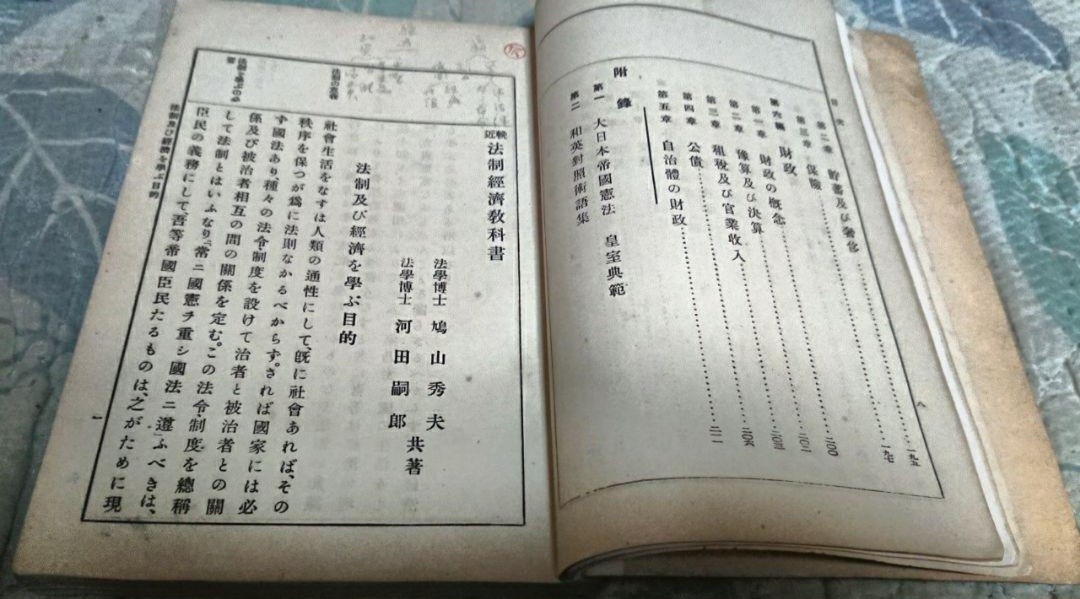 目次
第二章 貯蓄及び奢侈 一九五
第三章 保險 一九七
第六編 財政 二〇〇
第一章 財政の概念
第二章 豫算及び決算
第三章 租稅及び官業收入
第四章 公債
第五章 自治體の財政 二一一
附錄
第一 大日本帝國憲法 皇室典範
第二 和英對照術語集
八
輓近 法制經濟敎科書
法學博士 鳩山秀夫
法學博士 河田嗣郎
共著
法制及び經濟を學ぶ目的
社會生活をなすは人類の通性にして、旣に社會あれば、その
秩序を保つが爲に法則なかるべからず。されば國家には必
ず國法あり、種々の法令、制度を設けて治者と被治者との關
係及び被治者相互の間の關係を定む。この法令、制度を總稱
して法制とはいふなり。「常ニ國憲ヲ重シ國法ニ遵」ふべきは、
臣民の義務にして、吾等帝國臣民たるものは、之がために現
法制の意義
法制を學ぶの必要
法制及び經濟を學ぶ目的
一